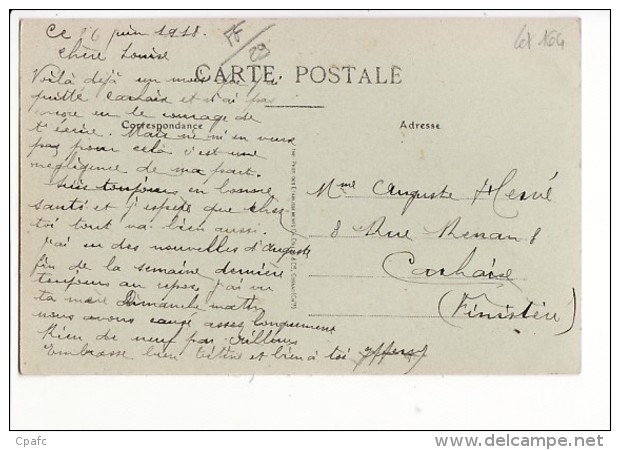 Ce 16 juin 1918.
chère Louise
Voilà déjà un mois que j'ai
quitté Carhaix et n'ai pas
encore eu le courage de
t'écrire. Mais ne m'en veux
pas pour cela c'est une
négligence de ma part.
Suis toujours en bonne
santé et j'espère que chez
toi tout va bien aussi.
J'ai eu des nouvelles d'Auguste
fin de la semaine dernière
toujours au repos, j'ai vu
ta mère Dimanche matin
nous avons causé assez longuement
Rien de neuf par ailleurs
Embrasse bien et bien à toi
CARTE POSTALE
Correspondance
Adresse
Mme Auguste Hervé
8 Rue Renan 8
Carhaix
(Finistère)
FF
29
164
Cpafc
www.delcampe.net